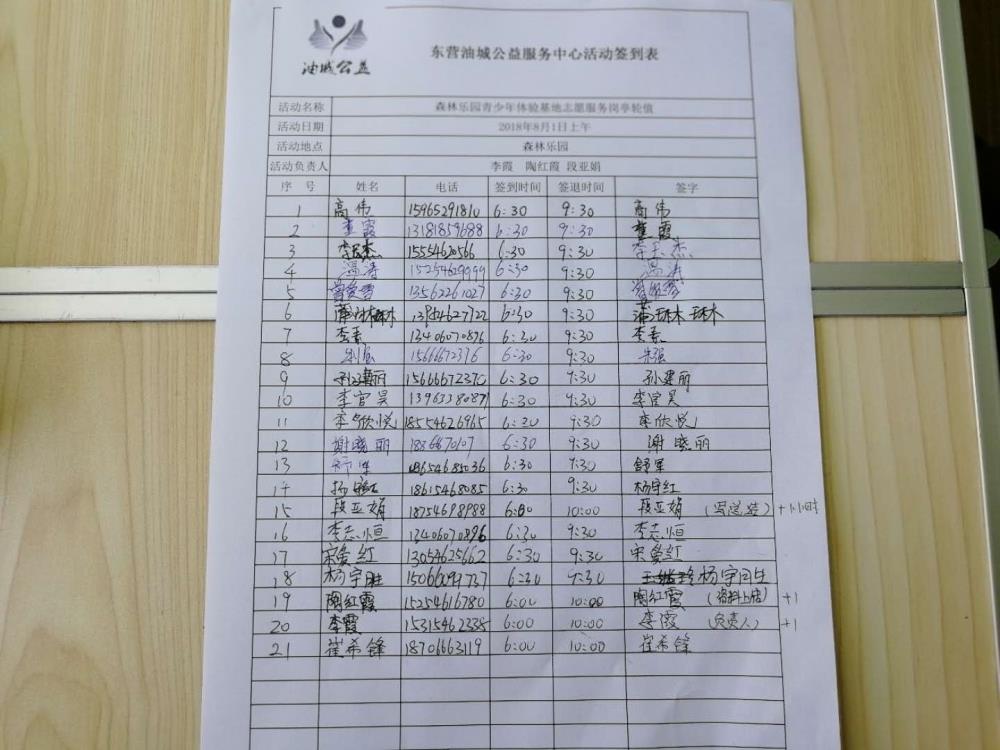 油城公益
东营油城公益服务中心活动签到表
活动名称 森林乐园青少年体验基地志愿服务岗亭轮值
活动日期 2018年8月1日上午
活动地点 森林乐园
活动负责人 李霞 陶红霞 段亚娟
序 号 姓名 电话 签到时间 签退时间 签字
1 高伟 15965291810 6:30 9:30 高伟
2 董霞 13181859688 6:30 9:30 董霞
3 李玉杰 15554620566 6:30 9:30 李玉杰
4 温涛 15254629999 6:30 9:30 温涛
5 13562261027 6:30 9:30
6 蒲琳琳 6:30 9:30 蒲琳琳
7 李素 13406070876 6:30 9:30 李素
8 朱强 15666672376 6:30 9:30 朱强
9 孙建丽 15666672370 6:30 9:30 孙建丽
10 李官昊 13963380871 6:30 9:30 李官昊
11 李欣悦 18554626965 6:30 9:30 李欣悦
12 谢晓丽 6:30 9:30 谢晓丽
13 舒军 18654685036 6:30 9:30 舒军
14 杨宇红 18615468085 6:30 9:30 杨宇红
15 段亚娟 18754698988 6:00 10:00 段亚娟 (写总结) +1小时
16 李志恒 13406070896 6:30 9:30 李志恒
17 宋爱红 13054625662 6:30 9:30 宋爱红
18 杨宇胜 15066091737 6:30 9:30 杨宇胜
19 陶红霞 15254616780 6:00 10:00 陶红霞 (资料上传) +1
20 李霞 15315462338 6:00 10:00 李霞 (负责人) +1
21 崔希锋 18706663119 6:00 10:00 崔希锋